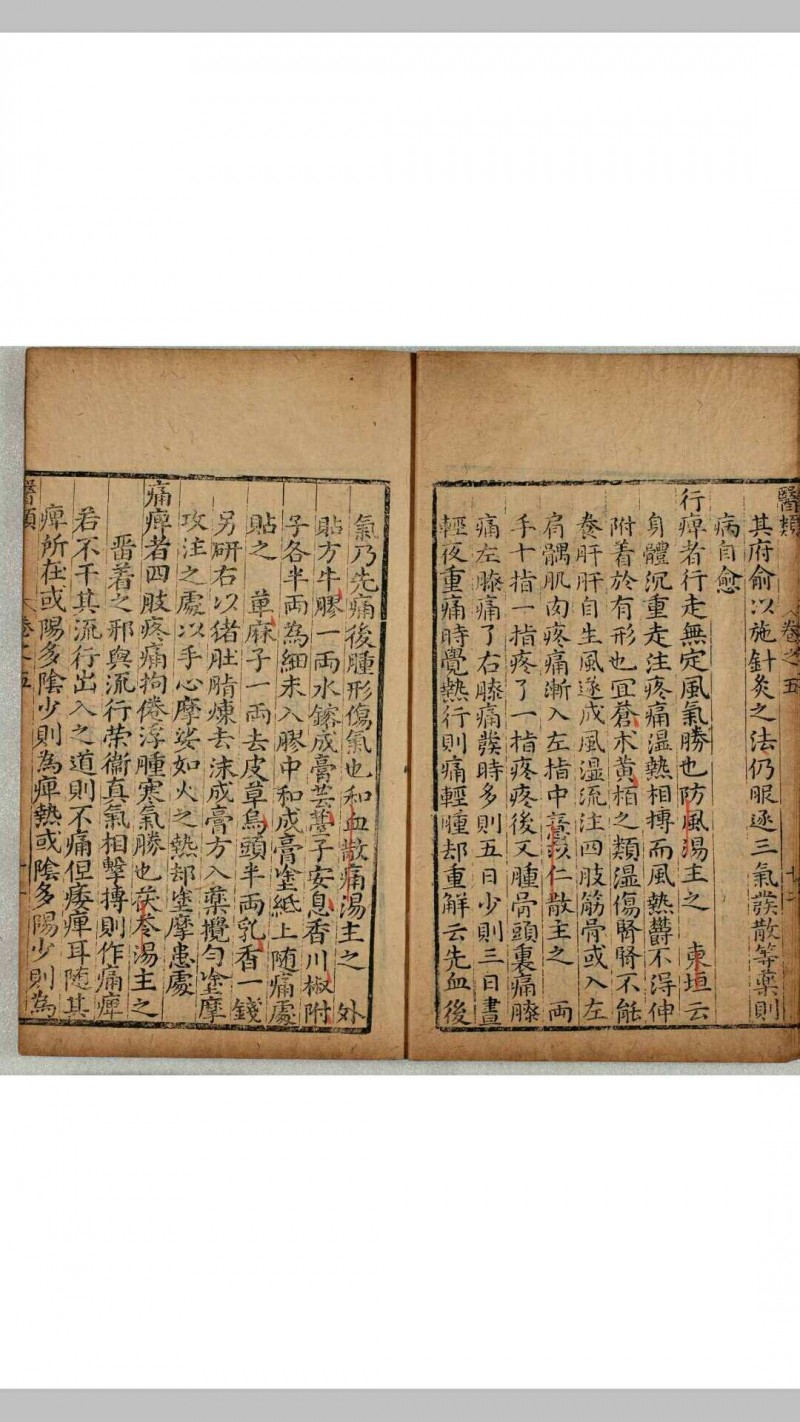 醫類 卷之五
其府俞以施針灸之法仍眼逐三氣發散等藥則
病自愈
行痺者行走無定風氣勝也防風湯主之 東垣云
身體沉重走注疼痛湿熱相搏而風熱欝不得伸
附着於有形也冝蒼术黄栢之類湿傷腎腎不能
養肝肝自生風遂成風湿流注四肢筋骨或入左
肩髃肌肉疼痛漸入左指中薏苡仁散主之 両
手十指一指疼了一指疼疼後又腫骨頭裏痛膝
痛左膝痛了右膝痛發時多則五日少則三日晝
輕夜重痛時覺熱行則痛輕腫却重解云先血後
氣乃先痛後腫形傷氣也和血散痛湯主之 外
貼方牛膠一両水鎔成膏芸薹子安息香川椒附
子各半両為細末入膠中和成膏塗紙上随痛處
貼之 萆麻子一両去皮草烏頭半両乳香一錢
另研右以猪肚脂煉去沫成膏方入藥攪勻塗摩
攻注之處以手心摩娑如火之熱却塗摩患處
痛痺者四肢疼痛拘倦浮腫寒氣勝也茯苓湯主之
畨着之邪與流行荣衞真氣相擊搏則作痛痺
若不干其流行出入之道則不痛但痿痺耳随其
痺所在或陽多陰少則為痺熱或陰多陽少則為
醫類 卷之五